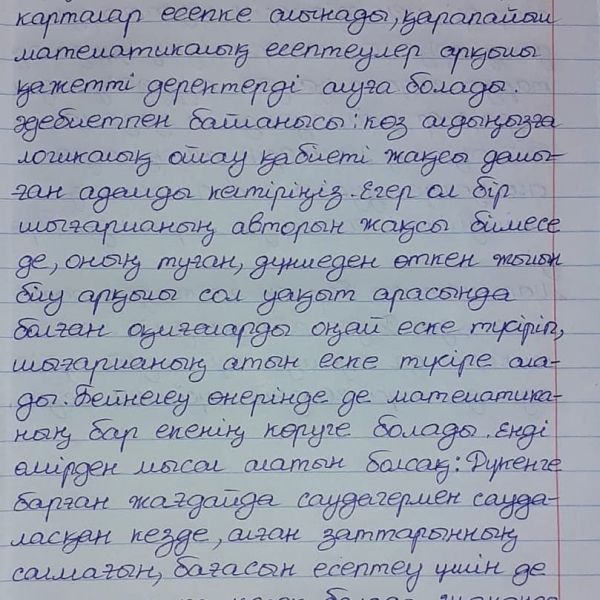 карталар есепке алынады, қарапайым
математикалық есептеулер арқылы
қажетті деректерді алуға болады.
Әдебиетпен байланысы: көз алдыңызға
логикалық ойлау қабілеті жақсы дамы-
ған адамды келтіріңіз. Егер ол бір
шығарманың авторын жақсы білмесе
де, оның туған, дүниеден өткен жылын
білу арқылы сол уақыт арасында
болған оқиғаларды оңай еске түсіріп,
шығарманың атын еске түсіре ала-
ды. Бейнелеу өнерінде де математика-
ның бар екенің көруге болады. Енді
өмірден мысал алатын болсақ: Дүкенге
барған жағдайда саудагермен сауда-
ласқан кезде, алған заттарынның
салмағын, бағасын есептеу үшін де